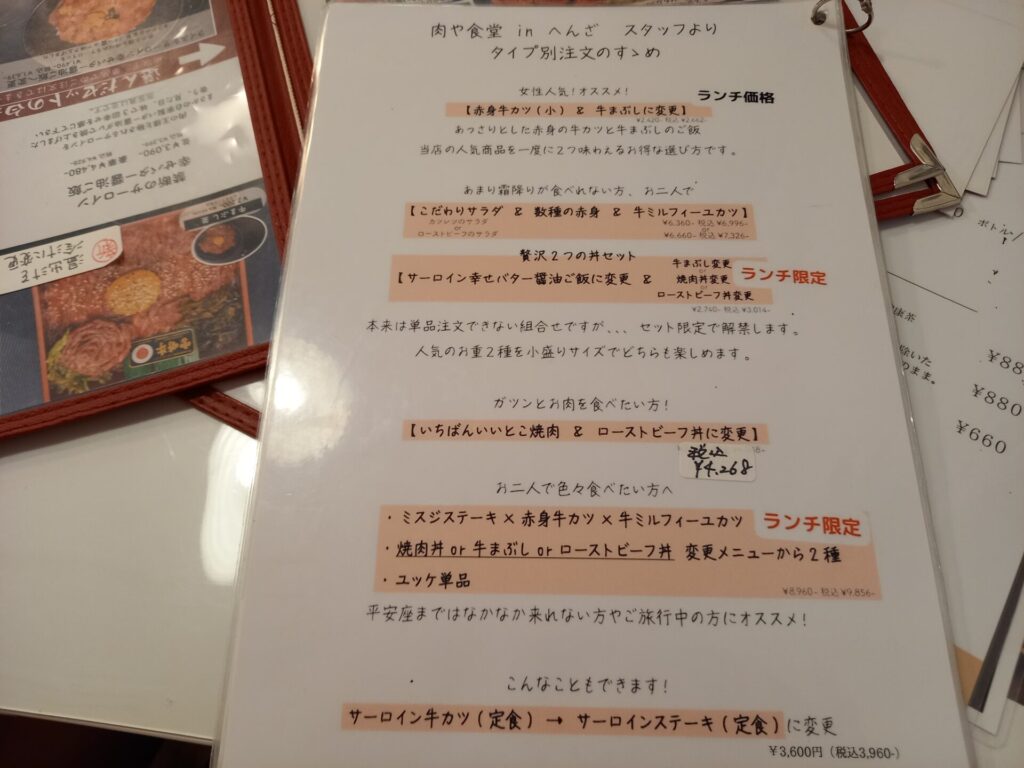 肉や食堂 in へんざ スタッフより
タイプ別注文のすゝめ
女性人気！オススメ！
ランチ価格
【赤身牛カツ（小） & 牛まぶしに変更】
¥2,420- 税込 ¥2,662-
あっさりとした赤身の牛カツと牛まぶしのご飯
当店の人気商品を一度に２つ味わえるお得な選び方です。
あまり霜降りが食べれない方、お二人で
【こだわりサラダ & 数種の赤身 & 牛ミルフィーユカツ】
カツレツのサラダ ¥6,360- 税込 ¥6,996-
or or
ローストビーフのサラダ ¥6,660- 税込 ¥7,326-
贅沢２つの丼セット
牛まぶし変更
【サーロイン幸せバター醤油ご飯に変更 & 焼肉丼変更
or
ローストビーフ丼変更
ランチ限定
¥2,740- 税込 ¥3,014-
本来は単品注文できない組合せですが、、、セット限定で解禁します。
人気のお重２種を小盛りサイズでどちらも楽しめます。
ガツンとお肉を食べたい方！
【いちばんいいとこ焼肉 & ローストビーフ丼に変更】
税込
¥4,268
お二人で色々食べたい方へ
・ミスジステーキ×赤身牛カツ×牛ミルフィーユカツ
ランチ限定
・焼肉丼 or 牛まぶし or ローストビーフ丼 変更メニューから２種
・ユッケ単品
¥8,960- 税込 ¥9,856-
平安座まではなかなか来れない方やご旅行中の方にオススメ！
こんなこともできます！
サーロイン牛カツ（定食） → サーロインステーキ（定食）に変更
¥3,600円（税込3,960-）
禁断のサーロイン
幸せバター醤油ご飯
並 ¥3,090-
温出汁を
冷汁に変更
牛まぶし重
ボトル/
¥880
¥660